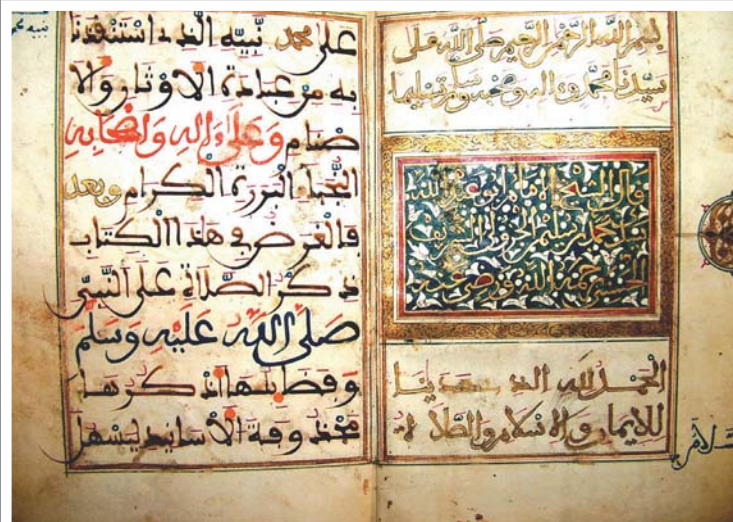 بسم الله الرحمن الرحيم صلى الله على
سيدنا محمد وءاله وصحبه وسلم تسليما
قال الشيخ الامام ابو عبد الله
محمد بن سليمن الجزولي الشريف
الحسني رحمه الله ورضي عنه
الحمد لله الذي هدينا
للايمان والاسلام والصلاة
على محمد نبيه الذي استنقذنا
به من عبادة الاوثان والا
صنام وعلى ءاله واصحابه
النجباء البررة الكرام وبعد
فالغرض في هذا الكتاب
ذكر الصلاة على النبي
صلى الله عليه وسلم
وفضائلها نذكرها
محذوفة الاسانيد ليسهل